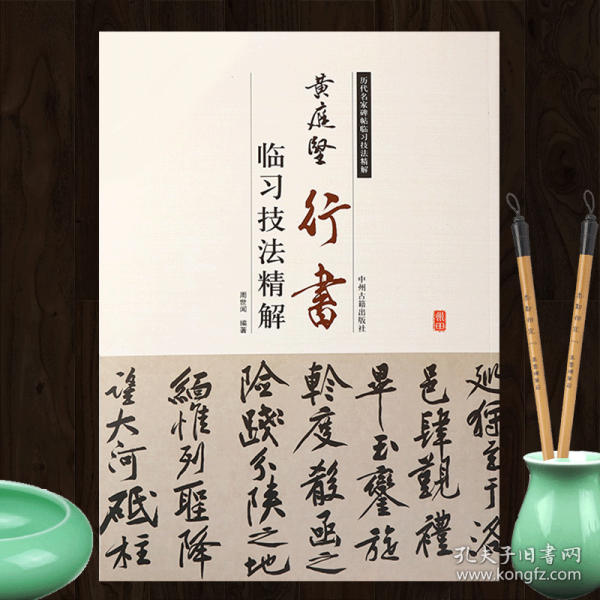 历代名家碑帖临习技法精解
黄庭坚
行書
临习技法精解
中州古籍出版社
周世闻 编著
巡狩至于洛
邑肆觐禮
畢玉鑾旋
軫度殽函之
險踐分陝之地
緬惟列聖降
望大河砥柱
孔夫子旧書网
www.kongfz.com